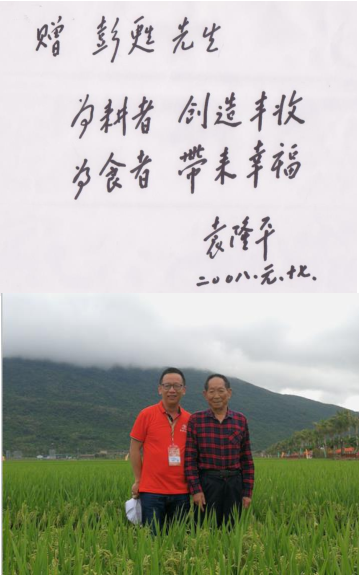 赠 彭甦 先生
为耕者 创造丰收
为食者 帶来幸福
袁隆平
二〇〇八.元.十七.